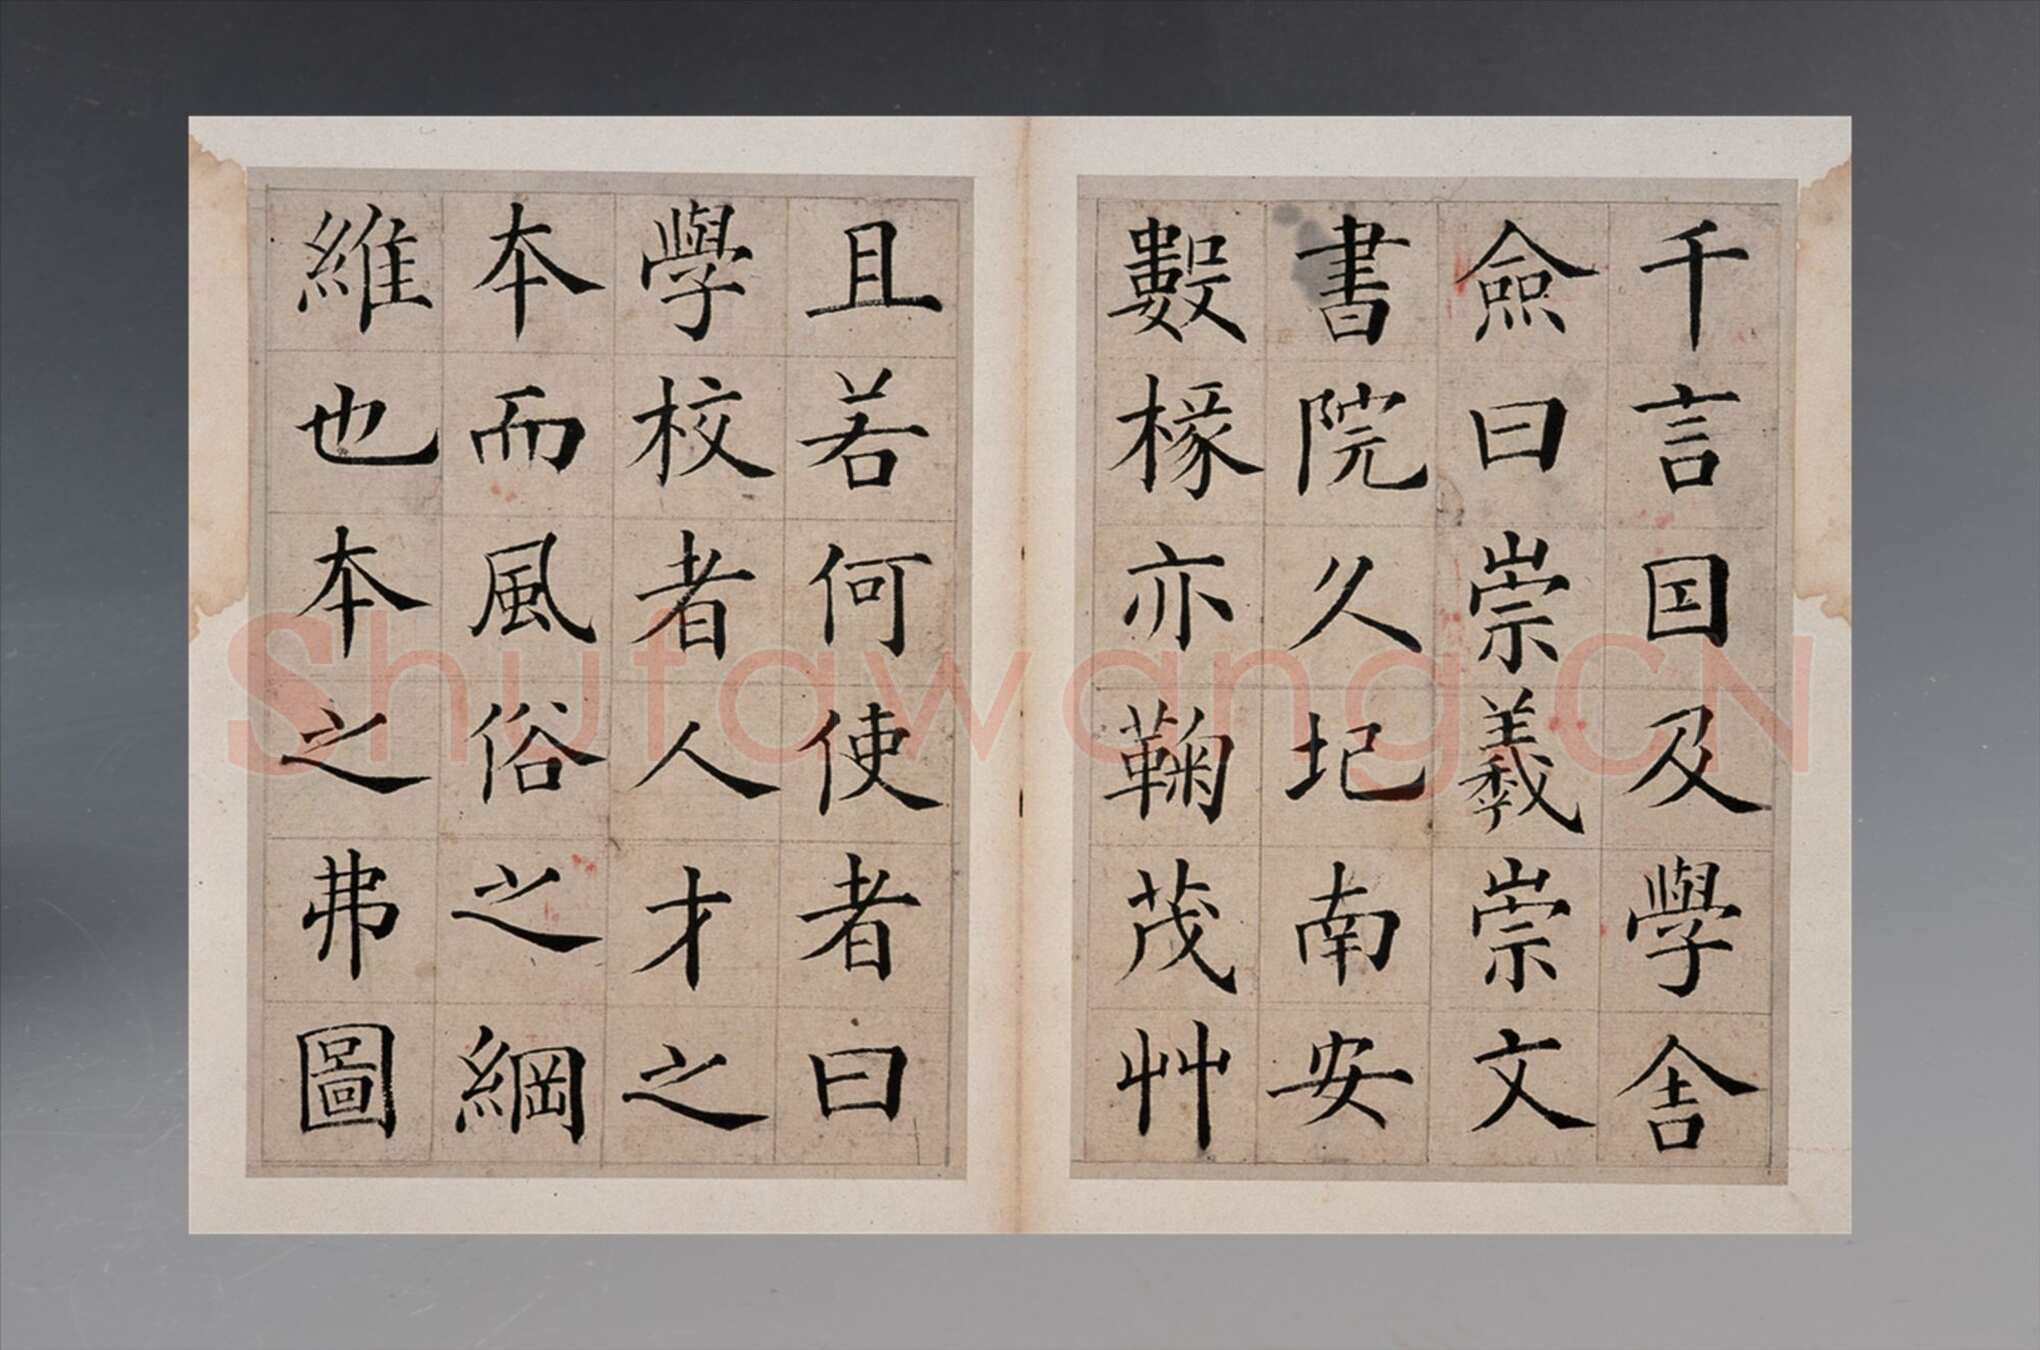 千言因及學舍
僉曰崇義崇文
書院久圮南安
數椽亦鞠茂艸
且若何使者曰
學校者人才之
本而風俗之綱
維也本之弗圖
Shufawang.CN